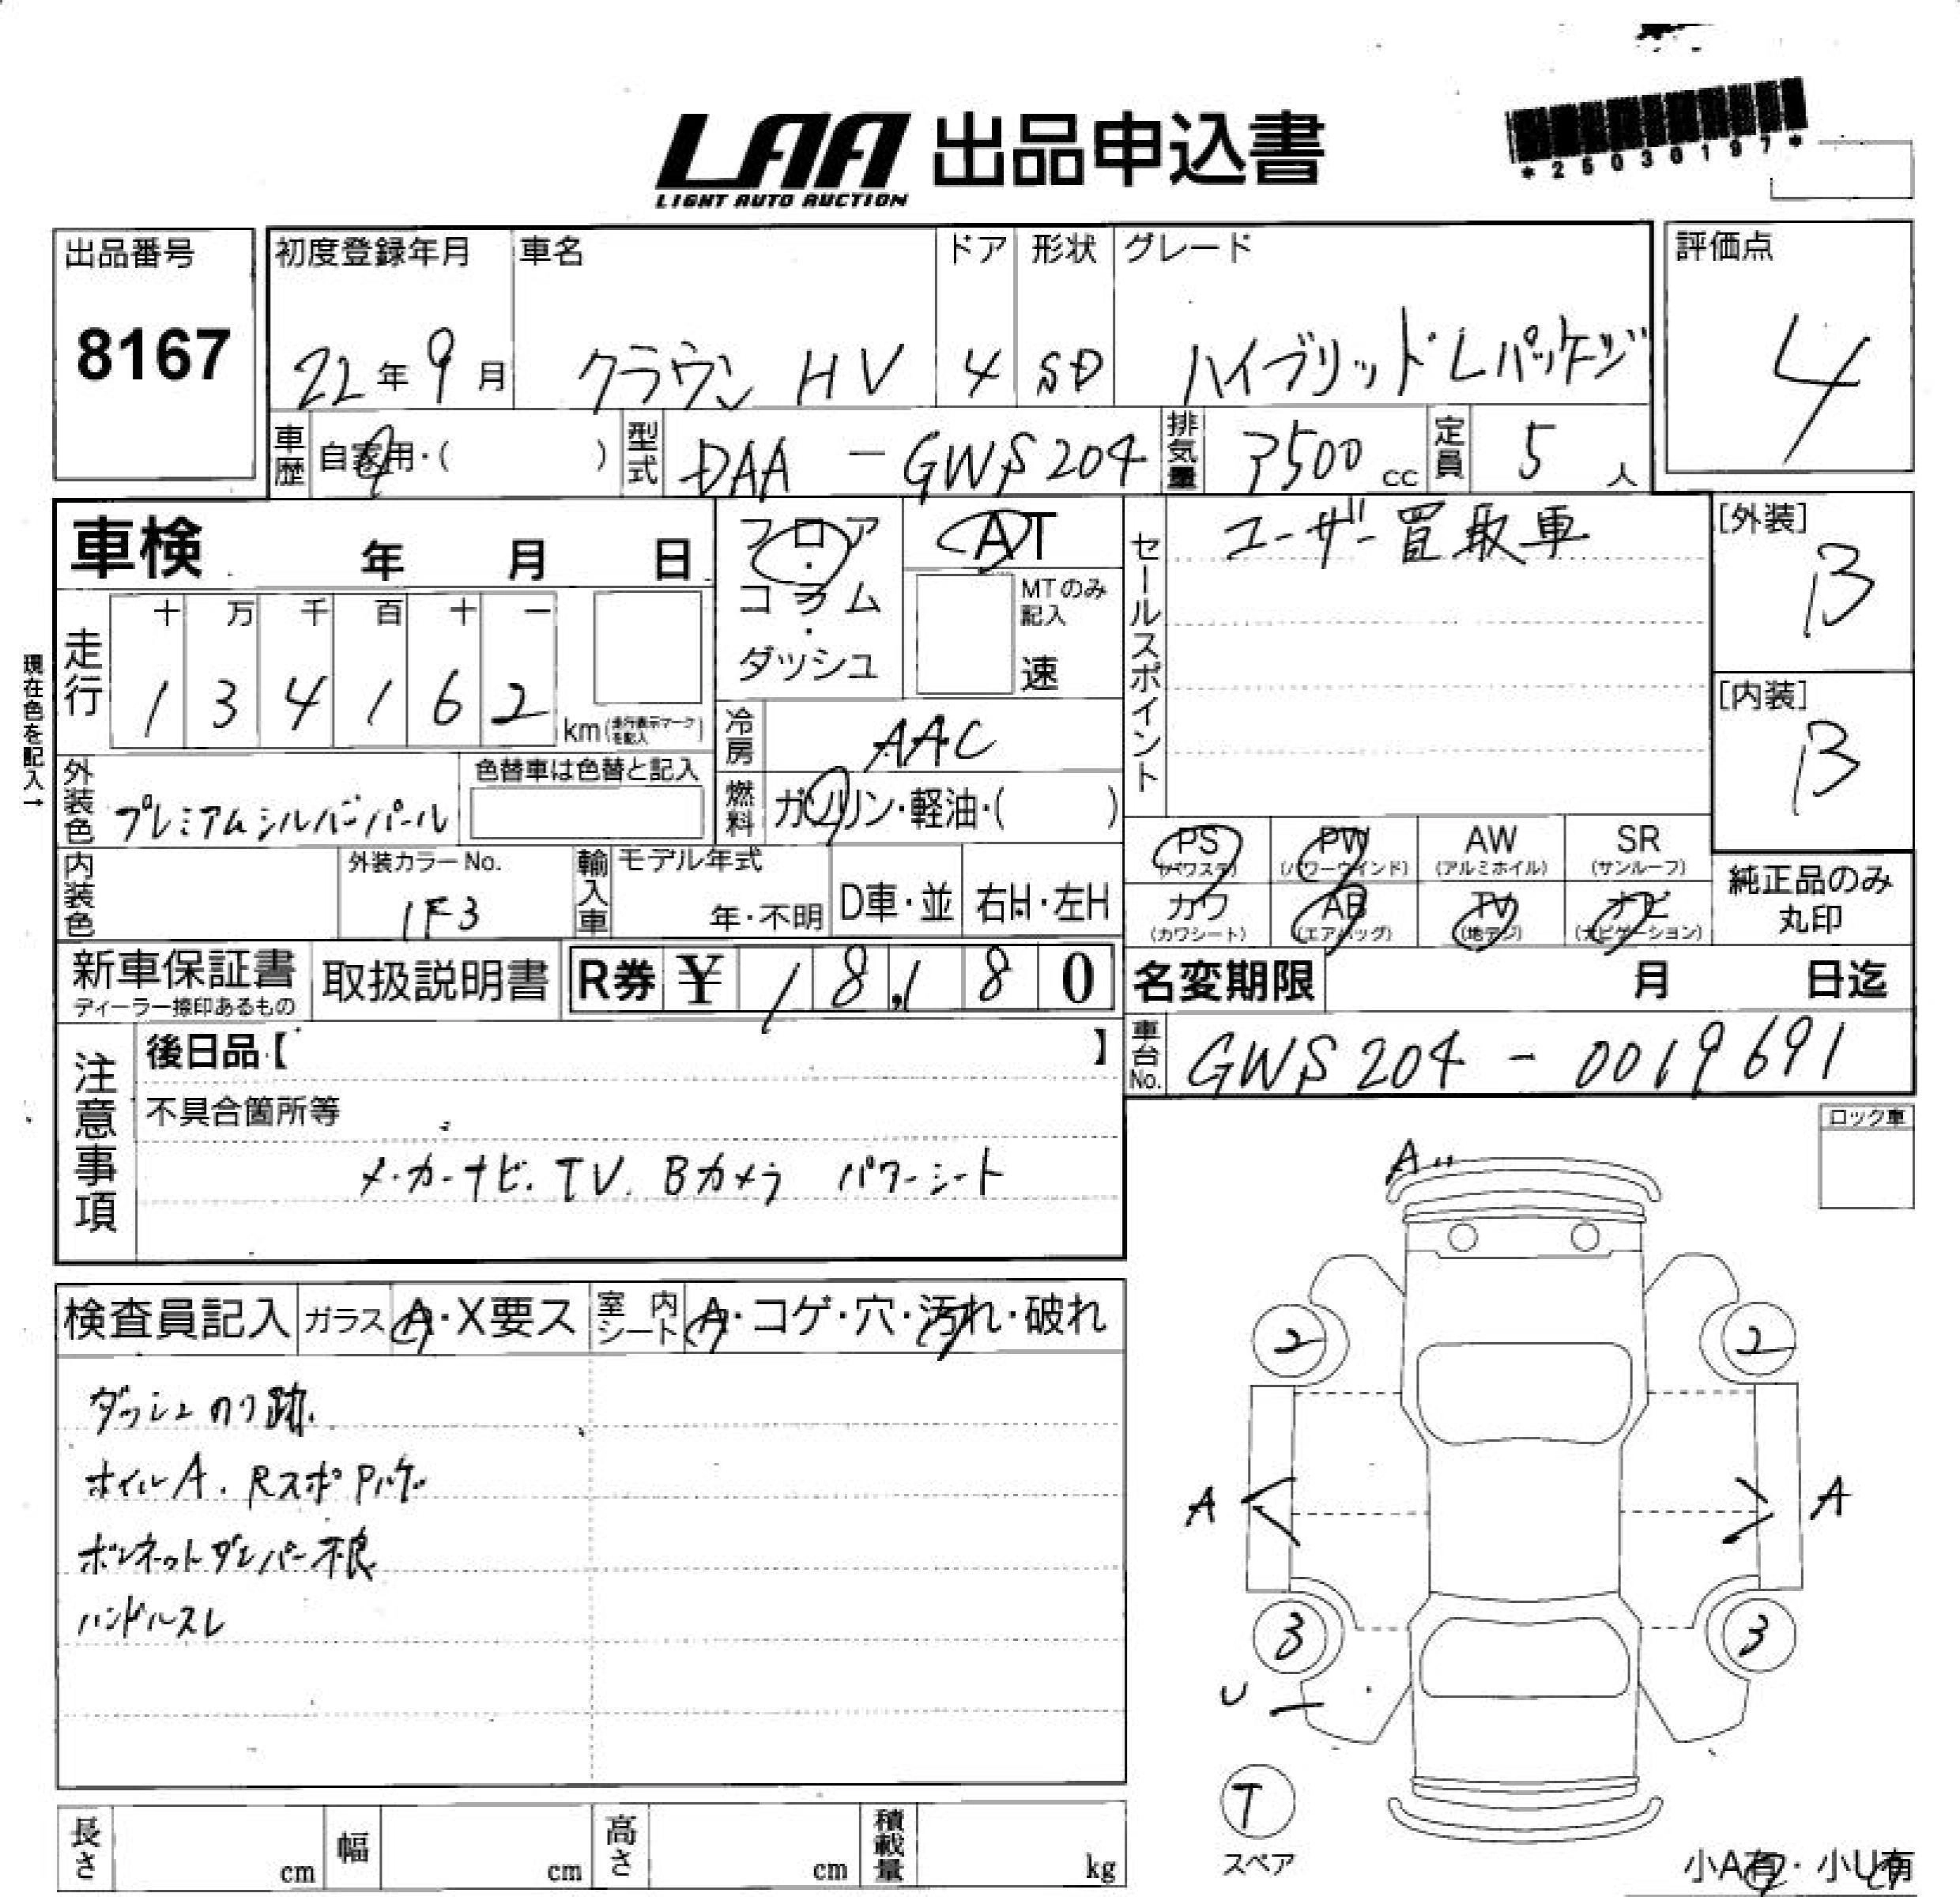 LAA 出品申込書
LIGHT AUTO AUCTION
*25030197*
出品番号
8167
初度登録年月 車名 ドア 形状 グレード 評価点
22年9月 クラウン HV 4 SD ハイブリッド Lパッケージ 4
車歴 自家用・( ) 型式 DAA - GWS204 排気量 3500 cc 定員 5 人
車検 年 月 日
現在色を記入→
走行 十 万 千 百 十 一
1 3 4 1 6 2 km (走行表示マークを記入)
フロア・コラム・ダッシュ
AT
MTのみ記入
速
冷房 AAC
燃料 ガソリン・軽油・( )
セールスポイント
ユーザー買取車
[外装]
B
[内装]
B
外装色 プレミアムシルバーパール
色替車は色替と記入
内装色
外装カラーNo.
1F3
輸入車 モデル年式
年・不明 D車・並 右H・左H
PS (パワステ) PW (パワーウインド) AW (アルミホイル) SR (サンルーフ)
カワ (カワシート) AB (エアバッグ) TV (地デジ) ナビ (ナビゲーション)
純正品のみ
丸印
新車保証書
ディーラー捺印あるもの
取扱説明書
R券 ¥ 18,180
名変期限 月 日迄
車台No. GWS204 - 0019691
注意事項
後日品【 】
不具合箇所等
メーカーナビ. TV. Bカメラ パワーシート
ロック車
検査員記入 ガラス A・X要ス 室内シート A・コゲ・穴・汚れ・破れ
ダッシュのり跡.
ホイルA. RスポPパケ
ボンネットダンパー不良
ハンドルスレ
A
2 2
A A
3 3
U
T
スペア
小A有・小U有
長さ cm 幅 cm 高さ cm 積載量 kg